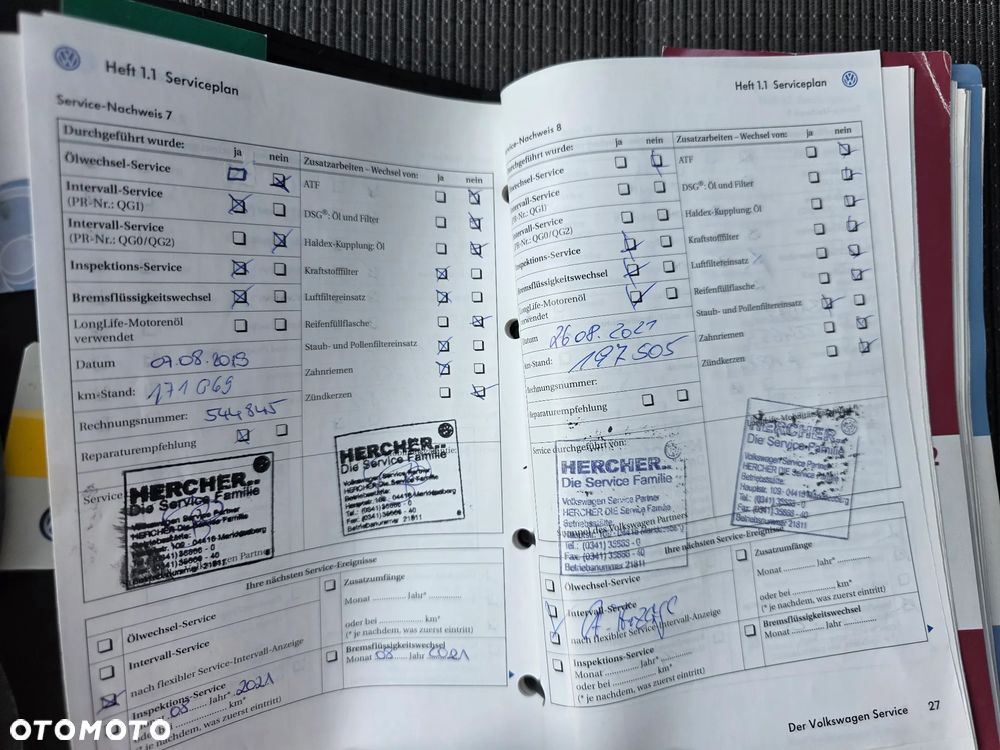 Heft 1.1 Serviceplan
Service-Nachweis 7
Durchgeführt wurde:
ja
nein
Ölwechsel-Service
Intervall-Service
(PR-Nr.: QGI)
Intervall-Service
(PR-Nr.: QG0/QG2)
Inspektions-Service
Bremsflüssigkeitswechsel
LongLife-Motorenöl
verwendet
Datum
km-Stand:
Rechnungsnummer: 544845
Reparaturempfehlung
Service
Zusatzarbeiten – Wechsel von:
ja
nein
ATF
DSG®: Öl und Filter
Haldex-Kupplung: Öl
Kraftstofffilter
Luftfiltereinsatz
Reifenfüllflasche
Staub- und Pollenfiltereinsatz
Zahnriemen
Zündkerzen
HERCHER..
Die Service Familie
Volkswagen Service Partner
HERCHER Die Service Familie
Betriebsstätte:
HERCHER..
Die Service Familie
Volkswagen Service Partner
HERCHER Die Service Familie
Betriebsstätte:
Betriebsnummer 21811
Ihre nächsten Service-Ereignisse
Ölwechsel-Service
Intervall-Service
nach flexibler Service-Intervall-Anzeige
Inspektions-Service
08 Jahr* 2021
oder bei km*
(* je nachdem, was zuerst eintritt)
Zusatzumfänge
Monat Jahr*
oder bei km*
(* je nachdem, was zuerst eintritt)
Bremsflüssigkeitswechsel
Monat 08 Jahr 2021
Heft 1.1 Serviceplan
Service-Nachweis 8
Durchgeführt wurde:
ja
nein
Ölwechsel-Service
Intervall-Service
(PR-Nr.: QGI)
Intervall-Service
(PR-Nr.: QG0/QG2)
Inspektions-Service
Bremsflüssigkeitswechsel
LongLife-Motorenöl
verwendet
Datum 26 08. 2021
km-Stand: 197 505
Rechnungsnummer:
Reparaturempfehlung
Service durchgeführt von:
Zusatzarbeiten – Wechsel von:
ja
nein
ATF
DSG®: Öl und Filter
Haldex-Kupplung: Öl
Kraftstofffilter
Luftfiltereinsatz
Reifenfüllflasche
Staub- und Pollenfiltereinsatz
Zahnriemen
Zündkerzen
HERCHER..
Die Service Familie
Volkswagen Service Partner
HERCHER Die Service Familie
Betriebsstätte:
Stempel des Volkswagen Partners
Betriebsnummer 21811
HERCHER..
Die Service Familie
Volkswagen Service Partner
HERCHER Die Service Familie
Betriebsstätte:
Betriebsnummer 21811
Ihre nächsten Service-Ereignisse
Ölwechsel-Service
Intervall-Service
nach flexibler Service-Intervall-Anzeige
Inspektions-Service
Monat Jahr*
oder bei km*
(* je nachdem, was zuerst eintritt)
Zusatzumfänge
Monat Jahr*
oder bei km*
(* je nachdem, was zuerst eintritt)
Bremsflüssigkeitswechsel
Monat Jahr
Der Volkswagen Service 27
OTOMOTO